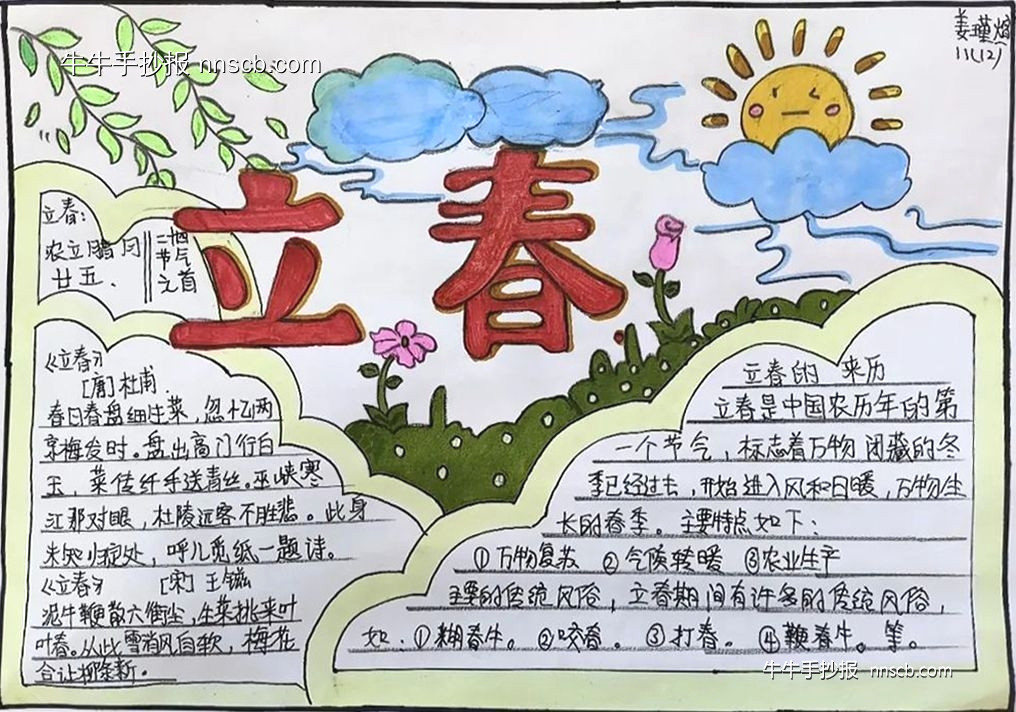 姜瑾熠
11(12)
牛牛手抄报 nnscb.com
立春
立春:
农立腊月
廿五.
二十四
节气
之首
《立春》
[唐]杜甫.
春日春盘细生菜,忽忆两
京梅发时。盘出高门行白
玉,菜传纤手送青丝。巫峡寒
江那对眼,杜陵远客不胜悲。此身
未知归定处,呼儿觅纸一题诗。
《立春》 [宋] 王镃
泥牛鞭散六街尘,生菜挑来叶
叶春。从此雪消风自软,梅花
合让柳条新。
立春的 来历
立春是中国农历年的第
一个节气,标志着万物闭藏的冬
季已经过去,开始进入风和日暖,万物生
长的春季。主要特点如下:
①万物复苏 ②气候转暖 ③农业生产
主要的传统风俗,立春期间有许多的传统风俗,
如:①糊春牛。②咬春。③打春。④鞭春牛。等。
牛牛手抄报 nnscb.com